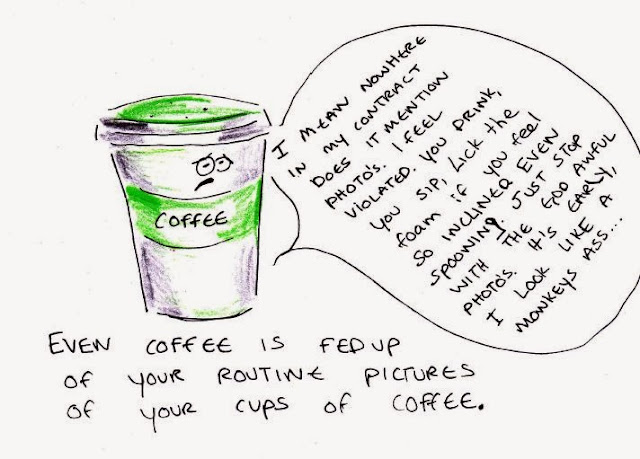 I MEAN NOWHERE
IN MY CONTRACT
DOES IT MENTION
PHOTO'S. I FEEL
VIOLATED. YOU DRINK,
YOU SIP, LICK THE
FOAM IF YOU FEEL
SO INCLINED EVEN
SPOONING. JUST STOP
WITH THE GOD AWFUL
PHOTO'S. It'S EARLY,
I LOOK LIKE A
MONKEYS ASS...
COFFEE
EVEN COFFEE IS FED UP
OF YOUR ROUTINE PICTURES
OF YOUR CUPS OF COFFEE.